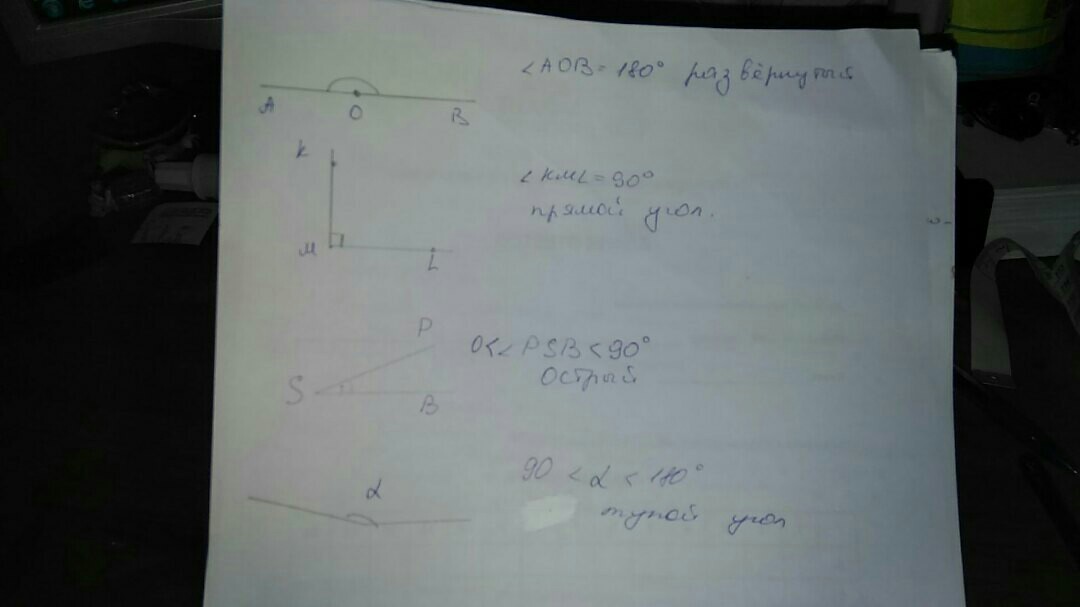 ∠AOB = 180° развёрнутый
A O B
K
∠KML = 90°
прямой угол.
M L
P
0<∠PSB<90°
Острый
S B
90 < α < 180°
α
тупой угол